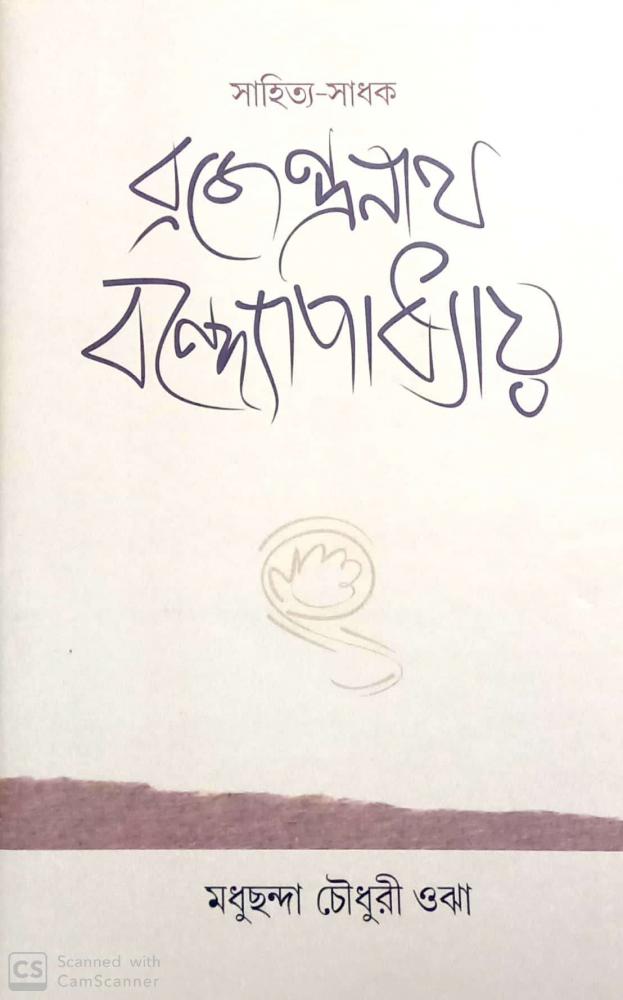 সাহিত্য-সাধক
ব্রজেন্দ্রনাথ
বন্দ্যোপাধ্যায়
মধুছন্দা চৌধুরী ওঝা
CS Scanned with
CamScanner